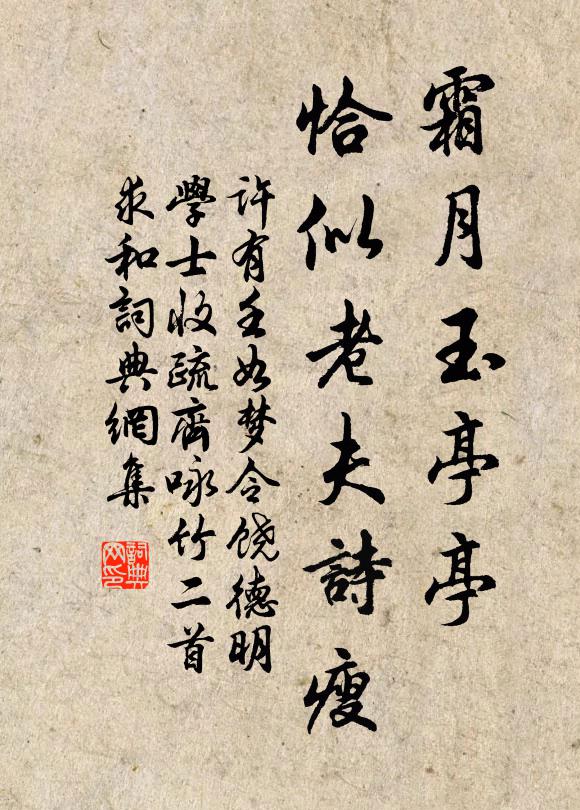 霜月玉亭亭
恰似老夫詩瘦
許有壬如梦令饶德明
學士收疏齊咏竹二首
求和詞典網集
詞典网印